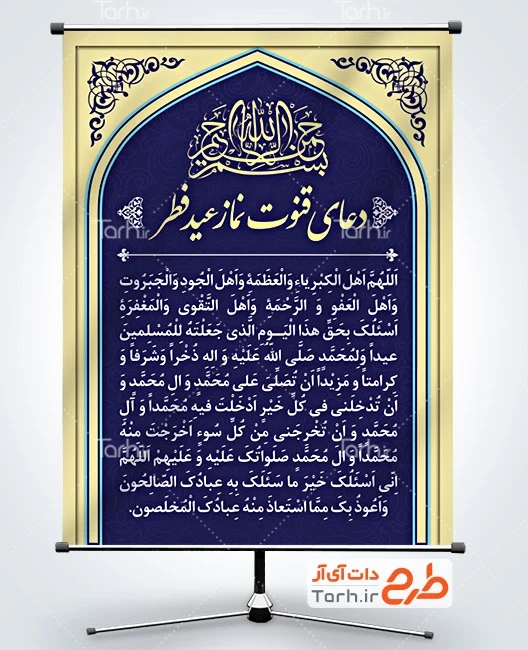 بسم الله الرحمن الرحیم
دعای قنوت نماز عید فطر
اَللّهُمَّ اَهْلَ الْکِبْرِیاءِ وَالْعَظَمَةِ وَاَهْلَ الْجُودِ وَالْجَبَرُوتِ
وَاَهْلَ الْعَفْوِ وَ الرَّحْمَةِ وَاَهْلَ التَّقْوی وَالْمَغْفِرَةِ
اَسْئَلُکَ بِحَقِّ هذَا الْیَومِ الَّذی جَعَلْتَهُ لِلْمُسْلِمینَ
عیداً وَلِمُحَمَّد صَلَّی اللهُ عَلَیْهِ وَ اله ذُخْراً وَشَرَفاً وَ
کرامتاً و مَزِیْداً اَنْ تُصَلِّیَ عَلی مُحَمَّدٍ وَ الِ مُحَمَّد وَ
اَنْ تُدْخِلَنی فی کُلِّ خَیْرٍ اَدْخَلْتَ فیهِ مُحَمَّداً وَ آلَ
مُحَمَّدٍ وَ اَنْ تُخْرِجَنی مِنْ کُلِّ سُوءٍ اَخْرَجْتَ مِنْهُ
مُحَمَّداً وَ الَ مُحَمَّد صَلَواتُکَ عَلَیْهِ وَ عَلَیْهِمْ اَللّهُمَّ
اِنّی اَسْئَلُکَ خَیْرَ ما سَئَلَکَ بِهِ عِبادُکَ الصّالِحُونَ
وَاَعُوذُ بِکَ مِمَّا اسْتَعاذَ مِنْهُ عِبادُکَ الْمُخْلَصُونَ.
طرح دات آی آر
Tarh.ir